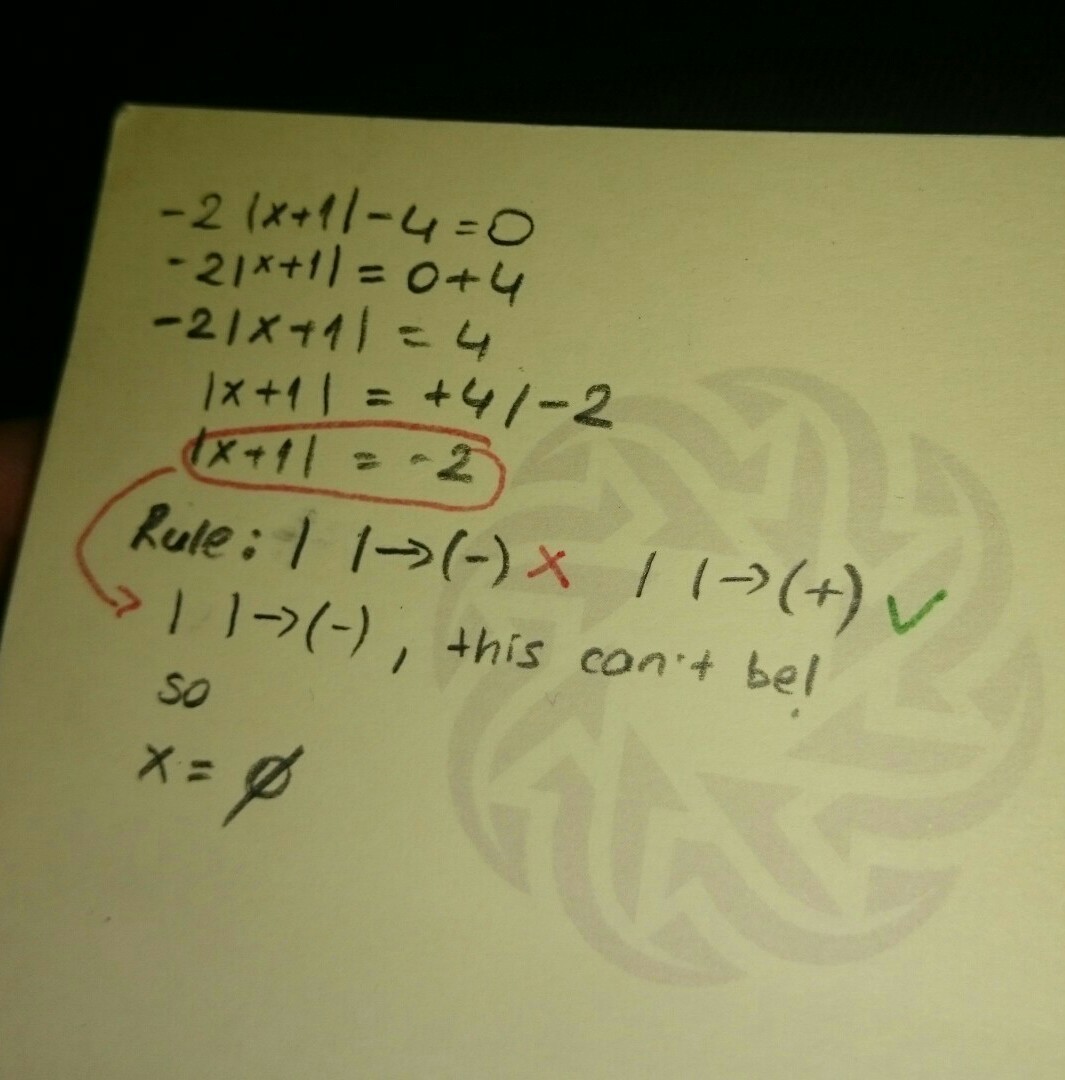 -2 |x+1| -4 =0
-2|x+1| = 0+4
-2|x+1| = 4
|x+1| = +4/-2
|x+1| = -2
Rule: | |→(-) × | |→(+) ✓
| |→(-), this can't be!
so
x = ∅